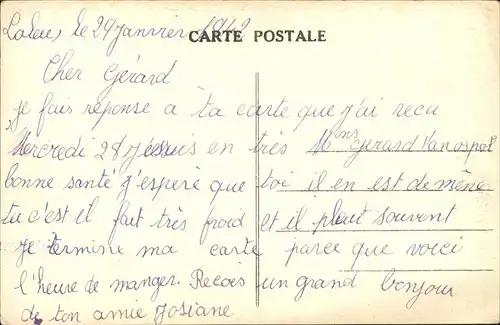 le 29 Janvier 1942
CARTE POSTALE
Cher Gérard
je fais réponse a ta carte que j'ai recu
Mercredi 28 Je suis en très
Mons Gerard Vanospal
bonne santé j'espère que toi il en est de même
tu c'est il fait très froid et il pleut souvent
Je termine ma carte parce que voici
l'heure de manger. Recois un grand bonjour
de ton amie Josiane